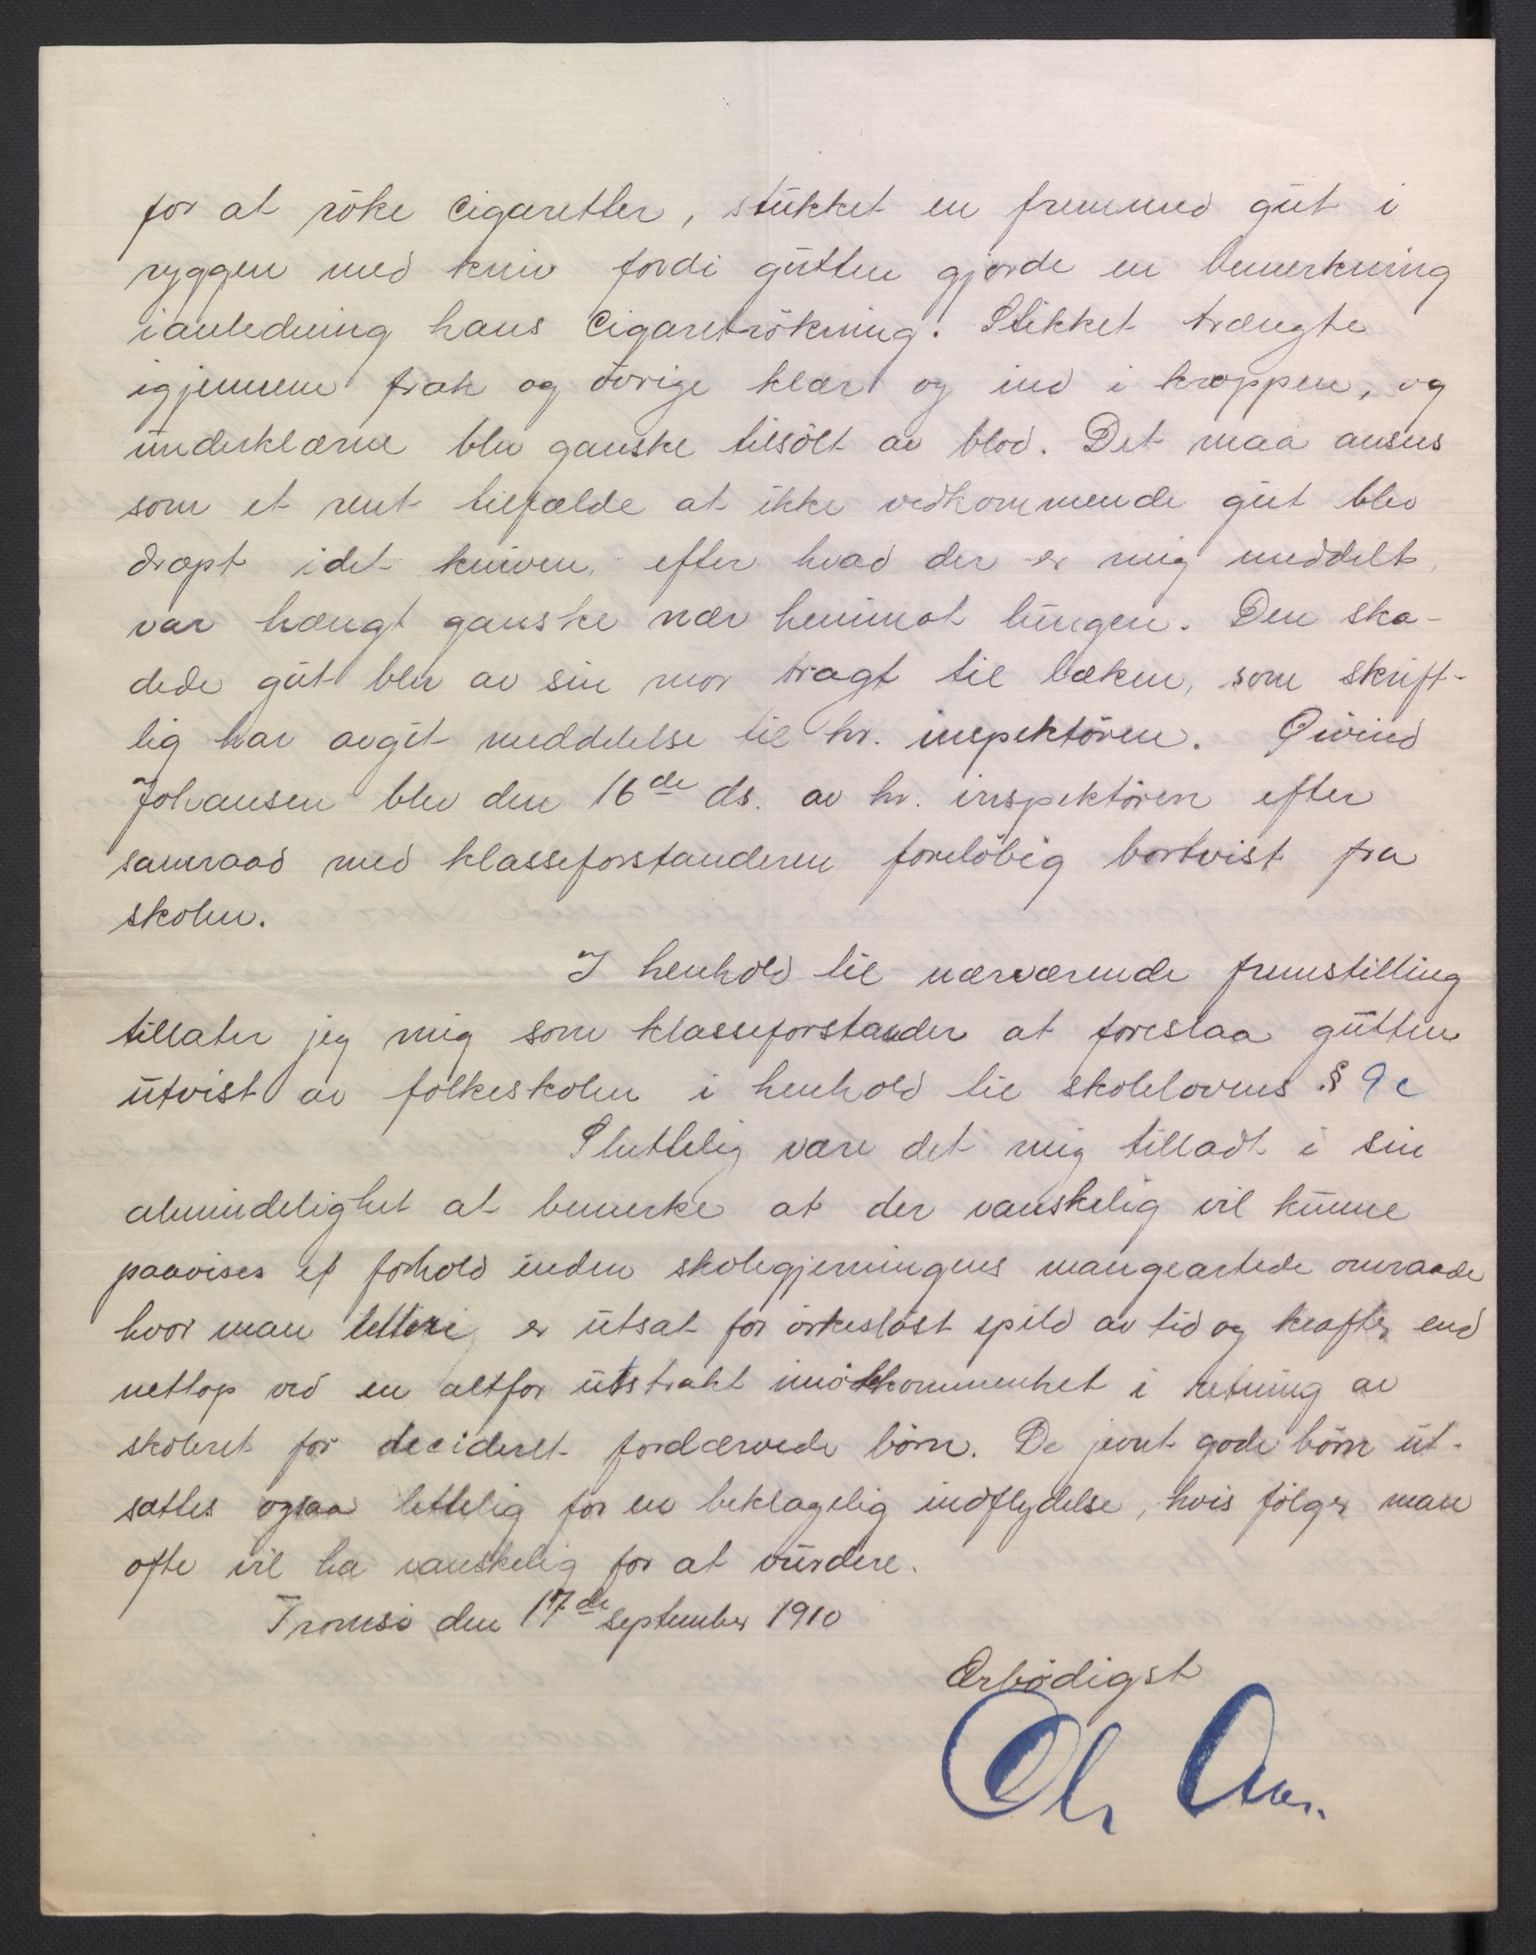 for at röke Cigaretter, stukket en fremmed gut i
ryggen med kniv fordi gutten gjorde en bemerkning
i anledning hans Cigaretrökning. Stikket trængte
igjennem frak og övrige klær og ind i kroppen, og
underklærne blev ganske tilsölt av blod. Det maa anses
som et rent tilfælde at ikke vedkommende gut blev
dræpt idet kniven, efter hvad der er mig meddelt,
var trængt ganske nær henimot lungen. Den ska-
dede gut blev av sin mor bragt til læken, som skrift-
lig har avgit meddelelse til hr. inspektören. Øivind
Johansen blev den 16de ds. av hr. inspektören efter
samraad med klasseforstanderen foreløbig bortvist fra
skolen.
I henhold til nærværende fremstilling
tillater jeg mig som klasseforstander at foreslaa gutten
utvist av folkeskolen i henhold til skolelovens § 9 c
Sluttelig være det mig tilladt i sin
almindelighet at bemerke at der vanskelig vil kunne
paavises et forhold inden skolegjerningens mangeartede omraade
hvor man lettere er utsat for örkeslöst spild av tid og kræfter end
nettop ved en altfor utstrakt imötekommenhet i retning av
skoleret for decideret fordærvede börn. De jevnt gode börn ut-
sættes ogsaa lettelig for en beklagelig indflydelse, hvis fölger man
ofte vil ha vanskelig for at vurdere.
Tromsö den 17de september 1910
Ærbödigst
Ol Aar.